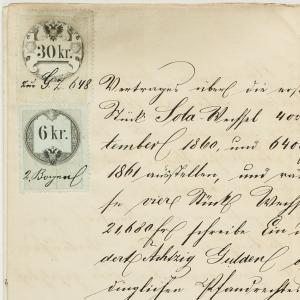 30 kr.
zur G. Z. 648
6 kr.
2. Bogen
Vertrages über die ers
Stück Sola-Wechsel 400
tember 1860, und 640
1861 ausstellen, und
se vier Stück Wechs
21,680 fl schreibe Ein
dert Achtzig Gulden
dinglichen Pfandrechtes